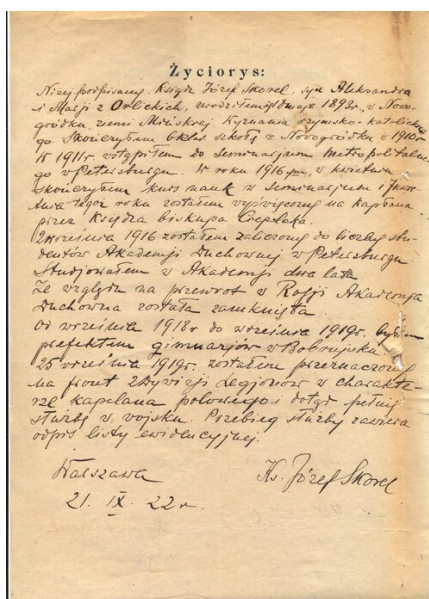 Życiorys:
Niżej podpisany Ksiądz Józef Skorel, syn Aleksandra
i Marji z Orlickich, urodziłem się maja 1893 r. w Nowo-
gródku, ziemi Mińskiej wyznania rzymsko-katolickie-
go. Skończyłem 6 klas szkoły w Nowogródku w 1910 r.
W 1911 r. wstąpiłem do seminarjum metropolitalne-
go w Petersburgu. W roku 1916, w kwietniu
skończyłem kurs nauk w seminarjum i
tegoż roku zostałem wyświęcony na kapłana
przez księdza biskupa Cieplaka.
2 września 1916 zostałem zaliczony do liczby stu-
dentów Akademji Duchownej w Petersburgu
Studjowałem w Akademji dwa lata
Ze względu na przewrót w Rosji Akademja
Duchowna została zamknięta
Od września 1918 r. do września 1919 r. byłem
prefektem gimnazjów w Bobrujsku
25 września 1919 r. zostałem przeznaczony
na front 2 Dywizji Legjonów w charakte-
rze kapelana polowego i dotąd pełnię
służbę w wojsku. Przebieg służby zawiera
odpis listy ewidencyjnej.
Warszawa
21. IX. 22 r.
Ks. Józef Skorel